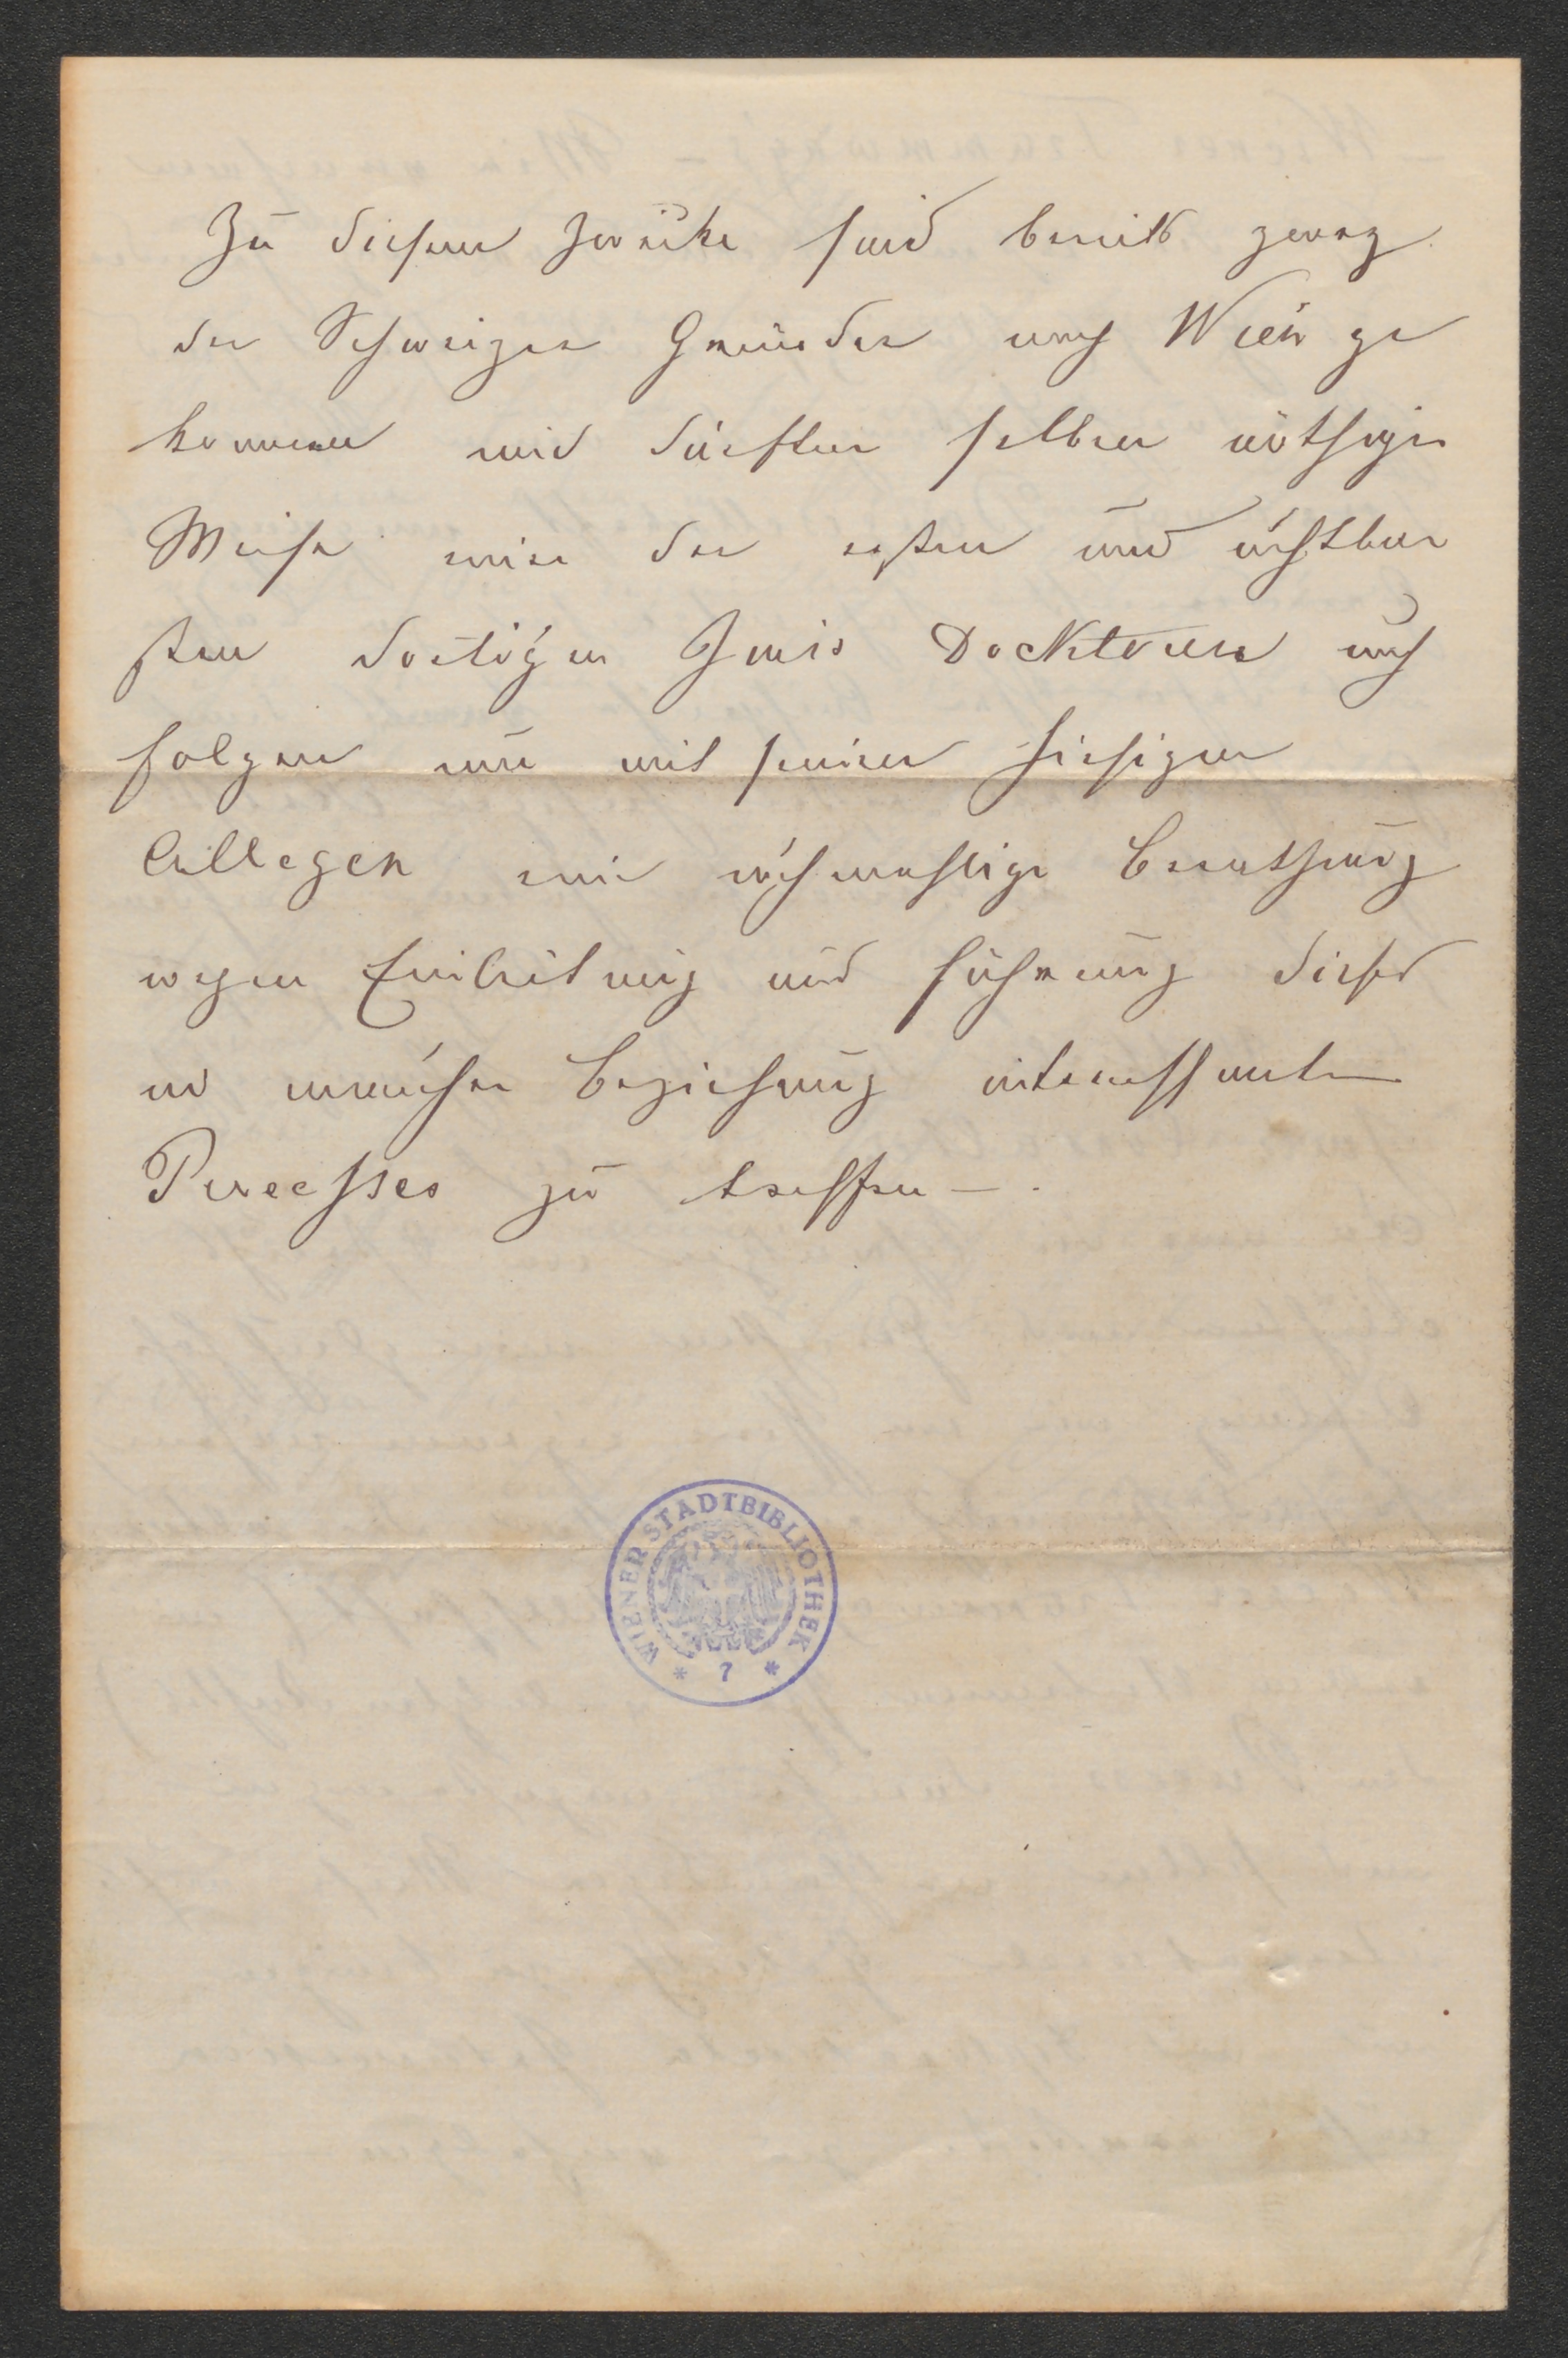 Zu diesem Zwecke sind bereits zwey
der Schweizer Gründer nach Wien ge
kommen und dürften selben nöthiger
Weise einer der ersten und achtbar
sten dortigen Juris Docktoren nach
folgen um mit seinen hiesigen
Collegen eine nochmahlige Berathung
wegen Einleitung und Führung dieses
in mancher Beziehung interessanten
Processes zu treffen —.
WIENER STADTBIBLIOTHEK
* 7 *